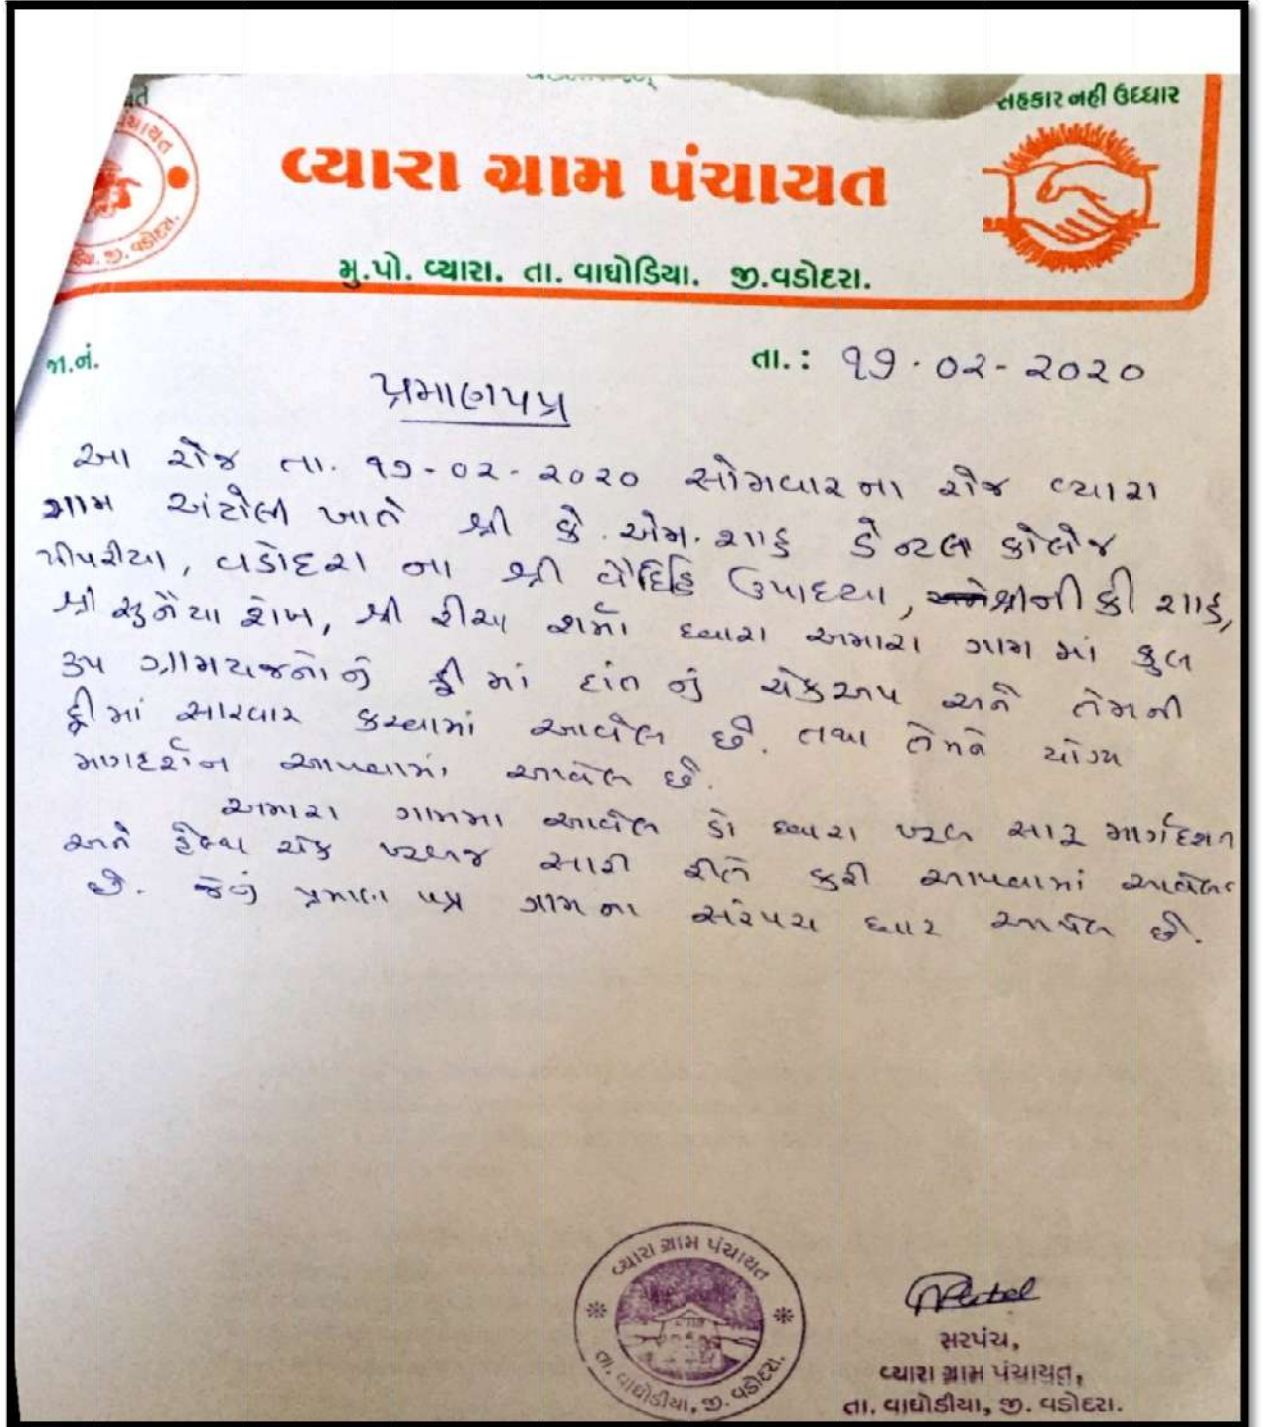 સહકાર નહી ઉદ્ધાર
વ્યારા ગ્રામ પંચાયત
મુ.પો. વ્યારા. તા. વાઘોડિયા. જી.વડોદરા.
જા.નં.
તા.: ૧૭.૦૨-૨૦૨૦
પ્રમાણપત્ર
આ રોજ તા. ૧૭-૦૨-૨૦૨૦ સોમવારના રોજ વ્યારા
ગામ અંટોલી ખાતે શ્રી કે.એમ.શાહ ડેન્ટલ કોલેજ
પીપરીયા, વડોદરા ના શ્રી વૈદિહિ ઉપાદયા, શ્રીની કી શાહ,
શ્રી સુનૈયા શેખ, શ્રી રીયા શર્મા દ્વારા અમારા ગામ માં કુલ
૩૫ ગ્રામયજનોનું ફ્રી માં દાંત નું ચેકઅપ અને તેમની
ફ્રીમાં સારવાર કરવામાં આવેલ છે. તથા તેમને યોગ્ય
માગદર્શન આપવામાં આવેલ છે.
અમારા ગામમા આવેલ ડો દ્વારા ખરલ સારૂ માર્ગદશન
અને હેલ્થ ચેક સારી રીતે કરી આપવામાં આવેલ
છે. જેનું પ્રમાણ પત્ર ગામના સરપચ દ્વાર આપેલ છે.
વ્યારા ગ્રામ પંચાયત
તા. વાઘોડીયા, જી. વડોદરા.
સરપંચ,
વ્યારા ગ્રામ પંચાયત,
તા. વાઘોડીયા, જી. વડોદરા.